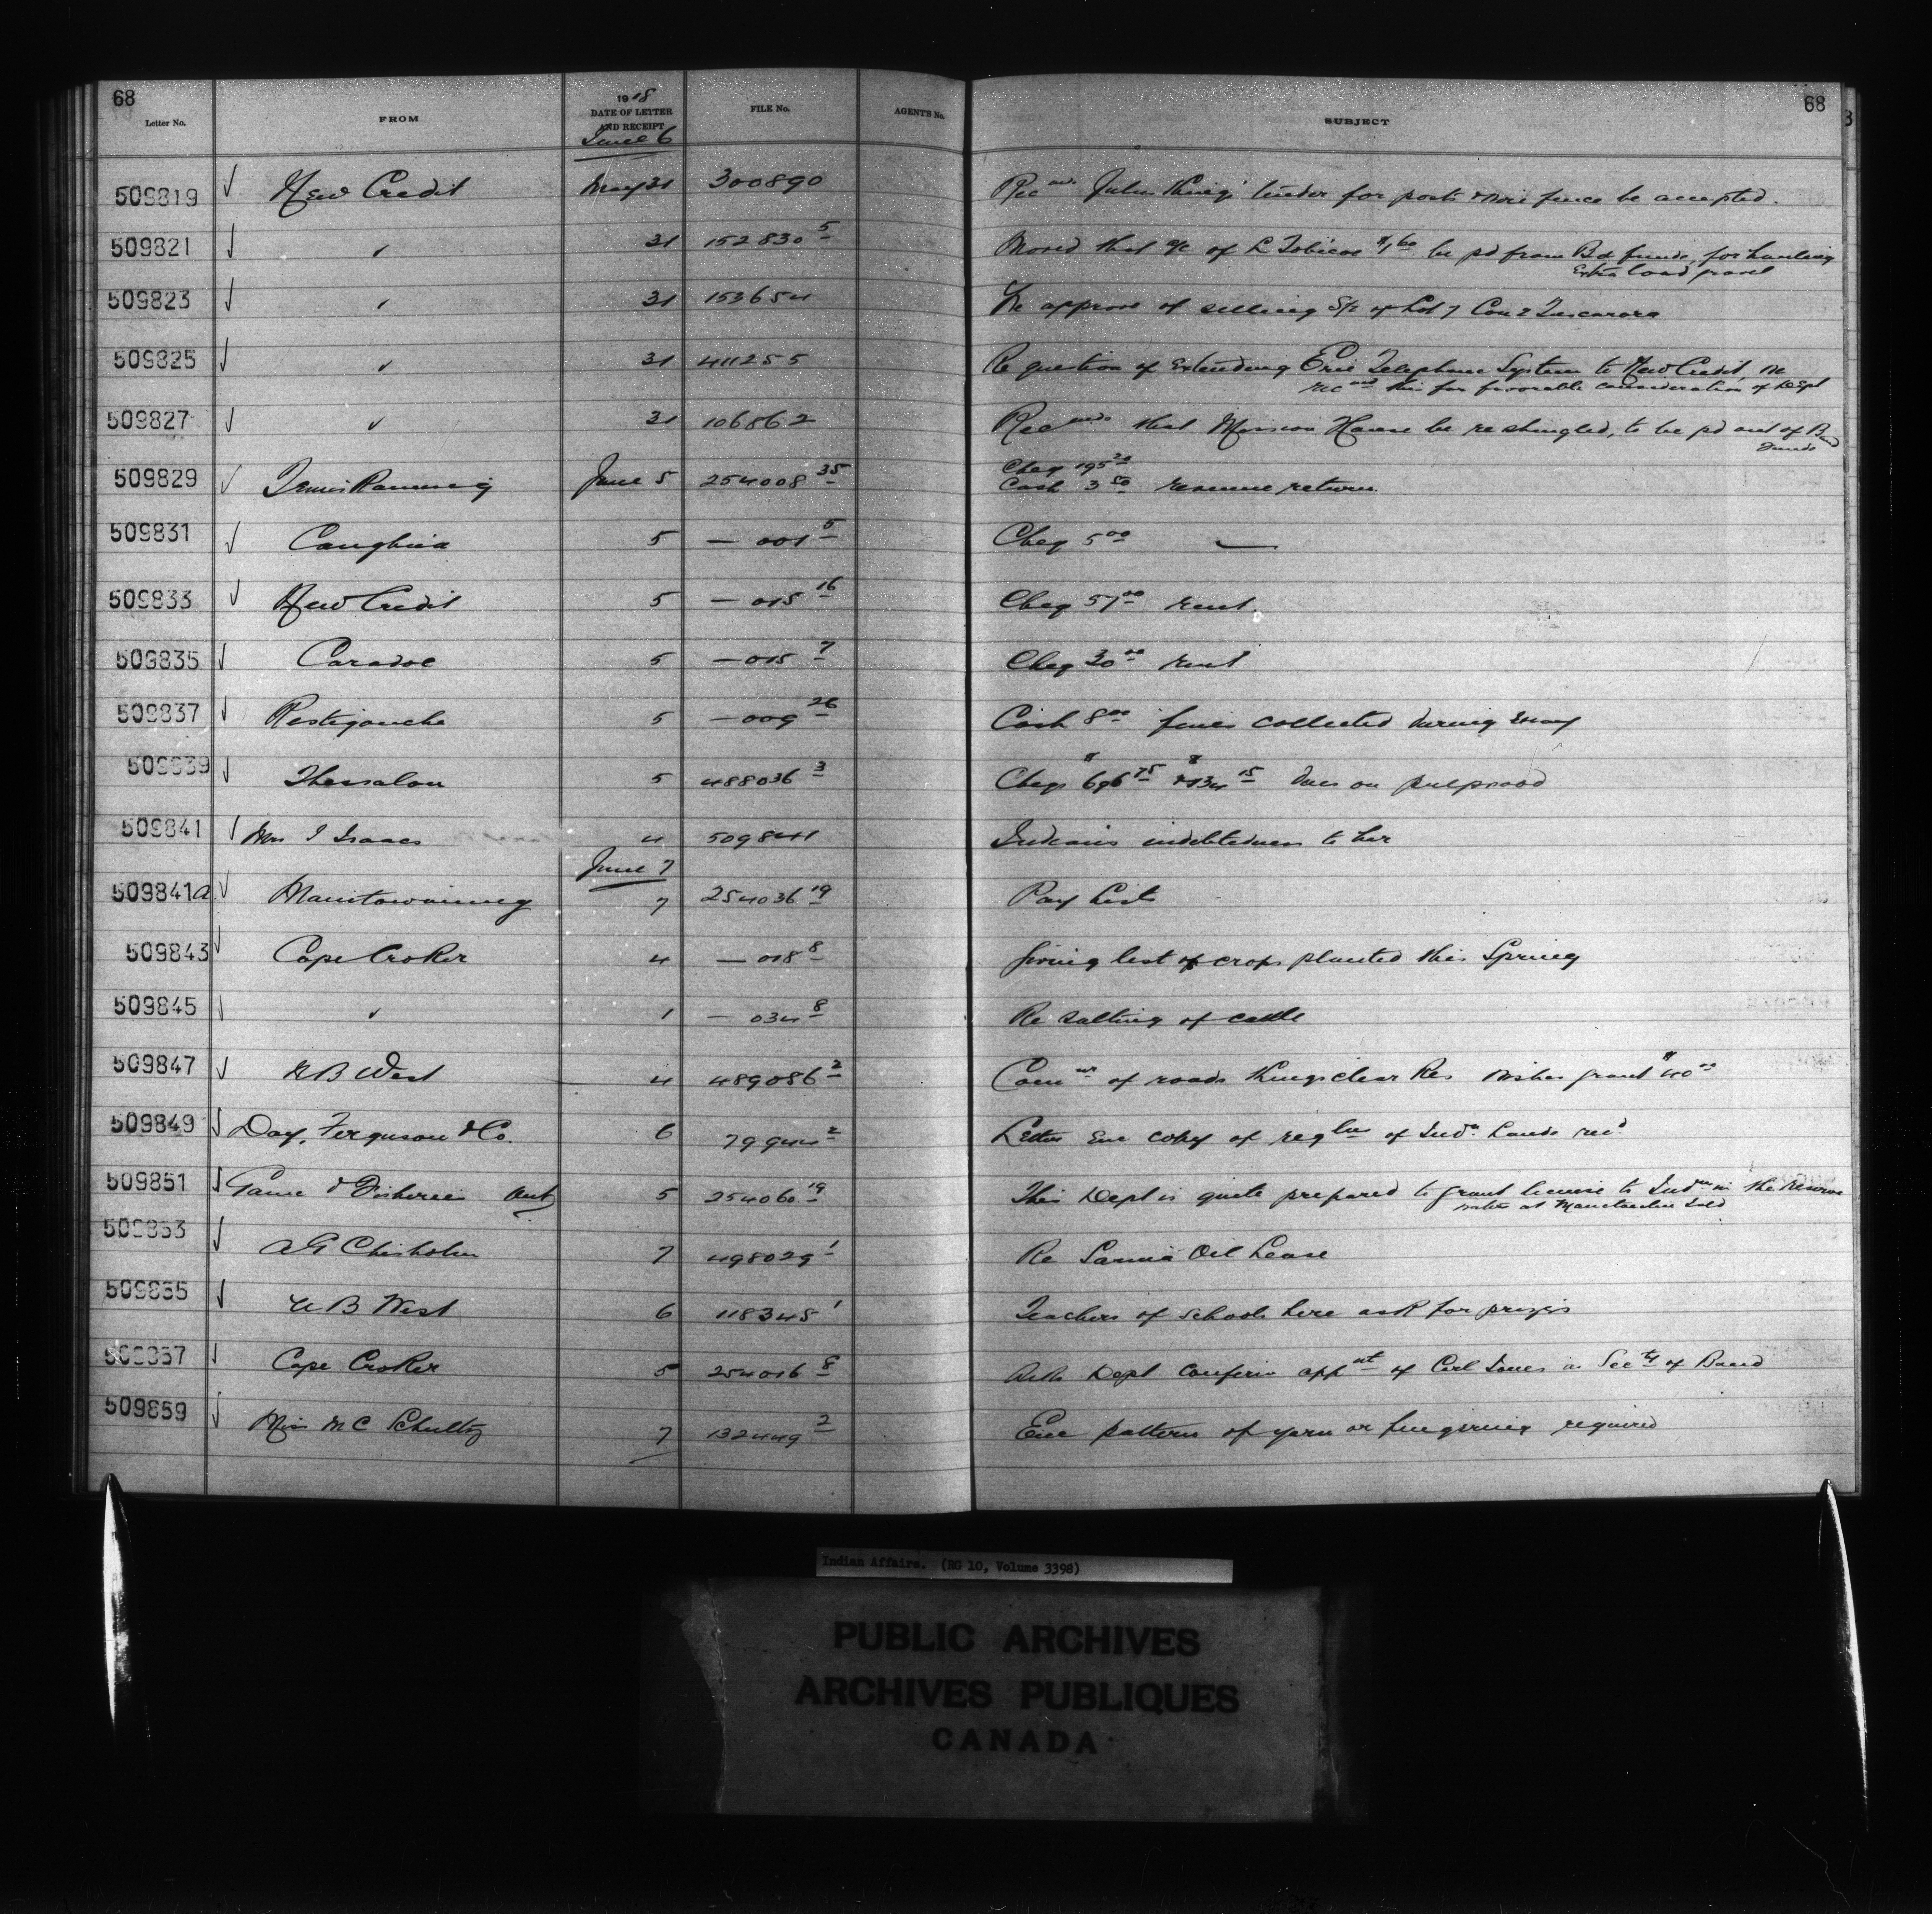 68
68
Letter No.
FROM
1918
DATE OF LETTER
AND RECEIPT
FILE No.
AGENT'S No.
SUBJECT
June 6
509819 √ New Credit May 31 300890 Rec mds John King's tender for posts & wire fence be accepted.
509821 √ " 31 152830 5 Moved that a/c of L Tobicoe $1 60 be pd from Bd funds, for hauling
Extra load gravel
509823 √ " 31 153654 We approve of selling S/2 of Lot 7 Con 2 Tuscarora
509825 √ " 31 411255 Re question of extending Erie Telephone System to New Credit. We
rec mnd this for favorable consideration of Dept
509827 √ " 31 106862 Rec mds that Mission House be reshingled, to be pd out of Band
Funds
509829 √ June 5 254008 35 Cheq 195 20
Cash 3 50 revenue return.
509831 √ 5 — 001 5 Cheq 5 00 —
509833 √ New Credit 5 — 015 16 Cheq 57 00 rent.
509835 √ Caradoc 5 — 015 7 Cheq 30 00 rent
509837 √ Restigouche 5 — 009 26 Cash 8 00 fines collected during May
509839 √ Thessalon 5 488036 3 Cheqs $696 75 & $134 15 dues on pulpwood
509841 √ Mrs I Isaacs 4 509841 Indians indebtedness to her
June 7
509841a √ Manitowaning 7 254036 19 Pay List
509843 √ Cape Croker 4 — 018 8 Giving list of crops planted this Spring
509845 √ " 1 — 034 8 Re salting of cattle
509847 √ B West 4 489086 2 Com nr of roads Kingsclear Res wishes grant $40 00
509849 √ Day, Ferguson & Co. 6 79944 2 Letter Enc copy of reg tns of Ind n Lands rec d
509851 √ Game & Fisheries Ont 5 254060 19 This Dept is quite prepared to grant license to Ind ns in the reserve
waters at Manitoulin Isld
509853 √ A G Chisholm 7 498029 1 Re Sarnia Oil Lease
509855 √ B West 6 118345 1 Teachers of schools here ask for prizes
509857 √ Cape Croker 5 254016 8 Asks Dept confirm app nt of Carl Jones as Sec ty of Band
509859 √ Miss M C Schultz 7 132449 2 Enc pattern of yarn or fingering required
Indian Affairs. (RG 10, Volume 3398)
PUBLIC ARCHIVES
ARCHIVES PUBLIQUES
CANADA